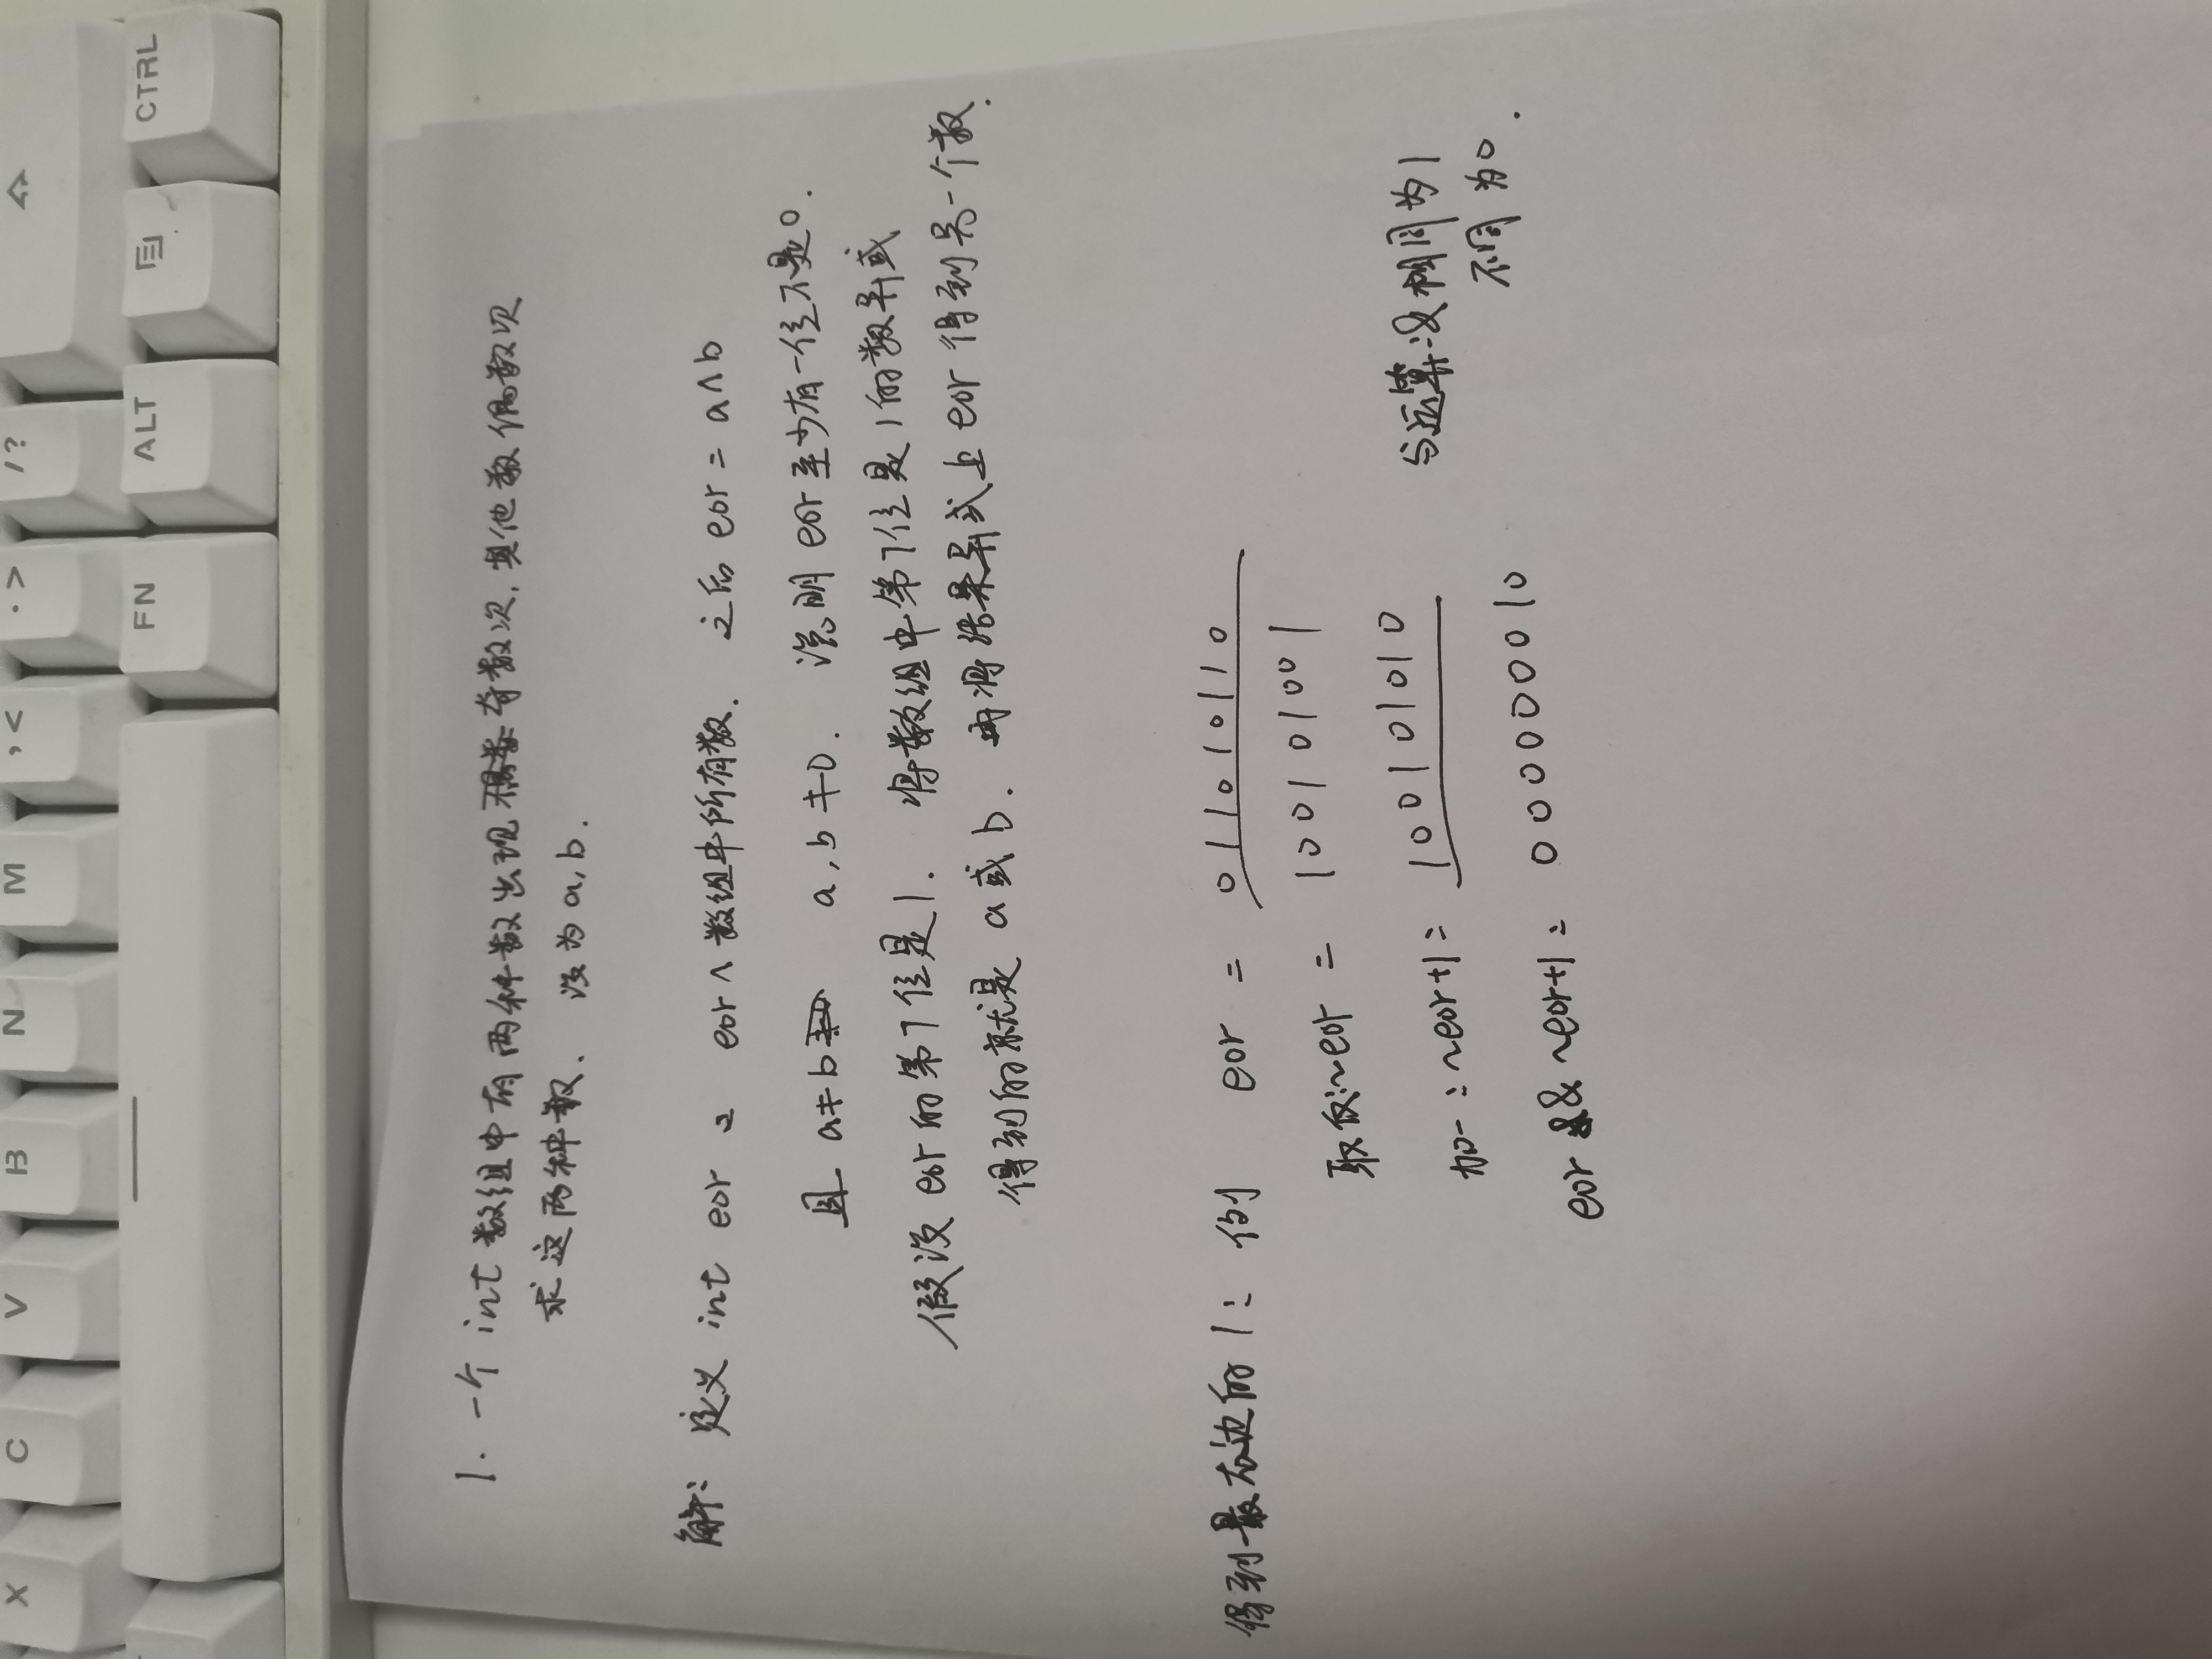 X C V B N M ,< .> /?
FN ALT CTRL
1. 一个 int 数组中有两种数出现奇数次, 其他数偶数次
求这两种数. 设为 a, b.
解: 定义 int eor = eor ∧ 数组中所有数. 之后 eor = a∧b
且 a≠b a, b ≠0. 说明 eor 至少有一位不是0.
假设 eor 的第7位是1. 将数组中第7位是1的数异或
得到的就是 a或b. 再将结果异或上 eor 得到另一个数.
得到最右边的1: 例 eor = 011010110
取反:~eor = 100101001
加一:~eor+1= 100101010
与运算:没相同为1
不同为0.
eor && ~eor+1= 000000010